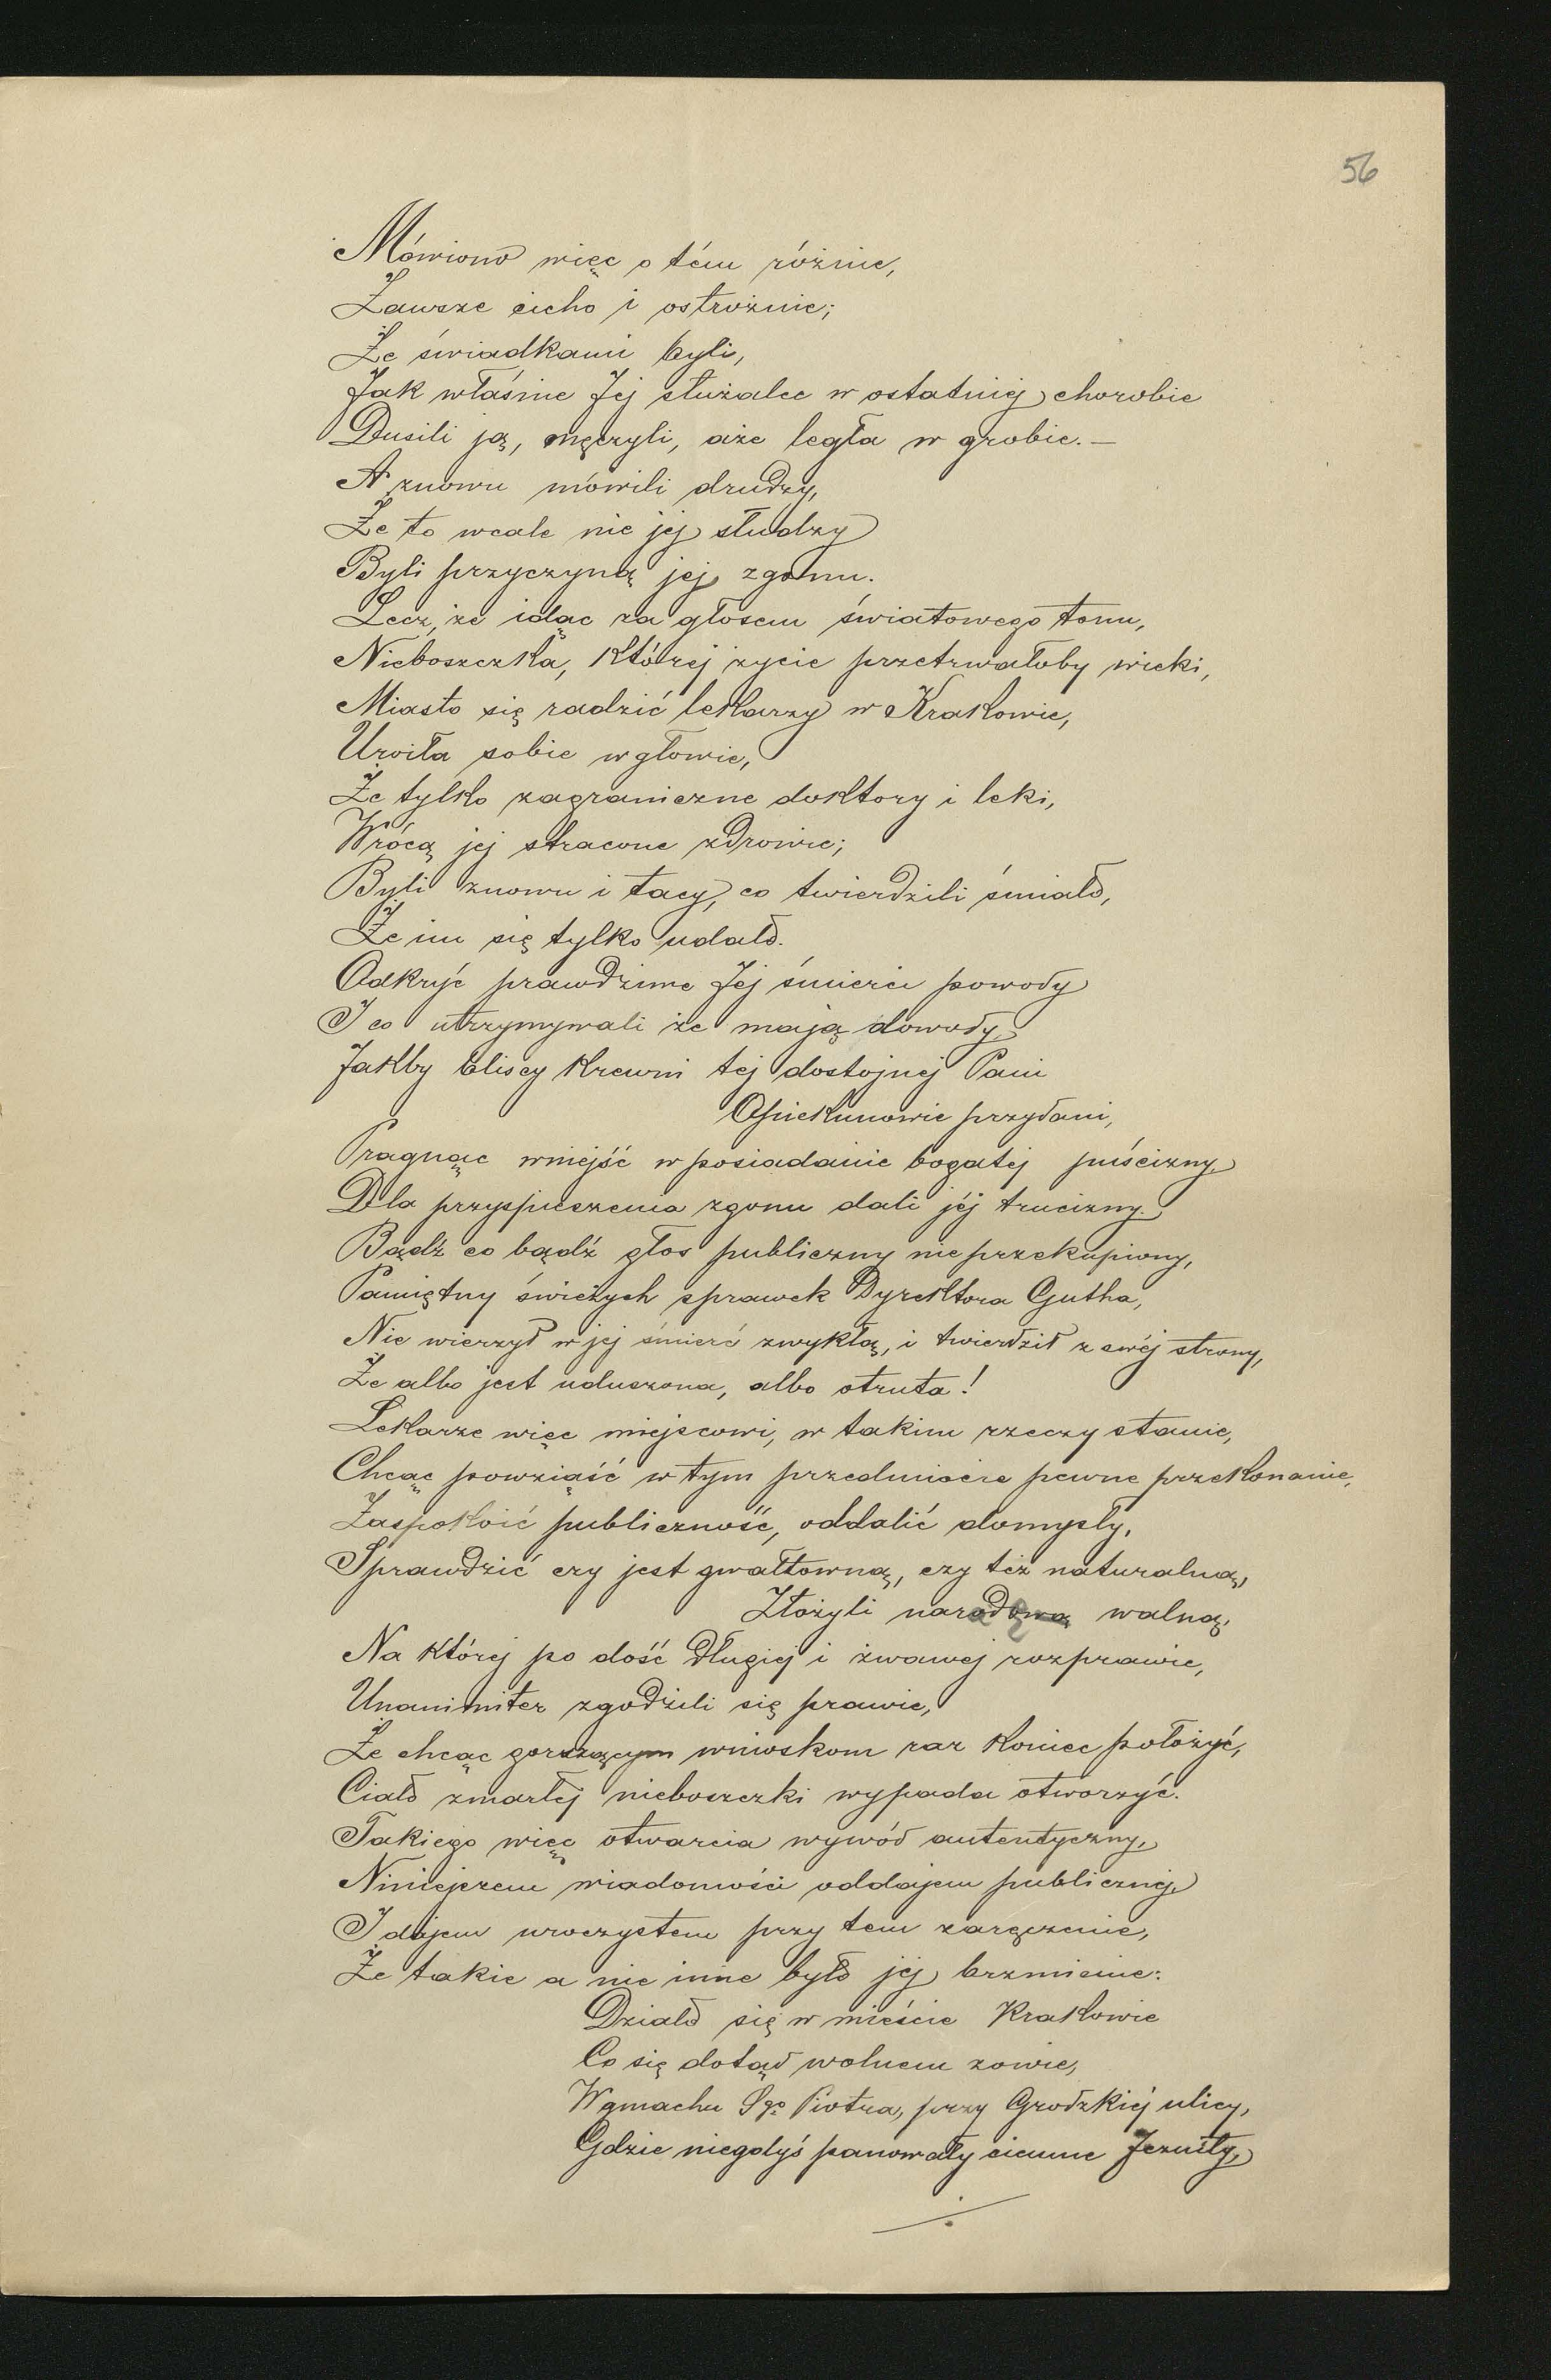 56
Mówiono więc o tém różnie,
Zawsze cicho i ostrożnie;
Że świadkami byli,
Jak właśnie Jej służalce w ostatniej chorobie
Dusili ją, męczyli, aże legła w grobie. —
A znowu mówili drudzy,
Że to wcale nie jej słudzy
Byli przyczyną jej zgonu.
Lecz, że idąc za głosem światowego tonu,
Nieboszczka, której życie przetrwałoby wieki,
Miasto się radzić lekarzy w Krakowie,
Uroiła sobie w głowie,
Że tylko zagraniczne doktory i leki,
Wrócą jej stracone zdrowie;
Byli znowu i tacy, co twierdzili śmiało,
Że im się tylko udało.
Odkryć prawdziwe Jej śmierci powody
I co utrzymywali że mają dowody,
Jakby bliscy krewni tej dostojnej Pani
Opiekunowie przydani,
Pragnąc wnijść w posiadanie bogatej puścizny,
Dla przyspieszenia zgonu dali jéj trucizny.
Bądź co bądź głos publiczny nieprzekupiony,
Pamiętny świeżych sprawek Dyrektora Gutha,
Nie wierzył w jej śmierć zwykłą, i twierdził z swéj strony,
Że albo jest uduszona, albo otruta!
Lekarze więc miejscowi, w takim rzeczy stanie,
Chcąc powziąść w tym przedmiocie pewne przekonanie,
Zaspokoić publiczność, oddalić domysły,
Sprawdzić czy jest gwałtowną, czy też naturalną,
Złożyli naradę walną,
Na której po dość długiej i żwawej rozprawie,
Unanimiter zgodzili się prawie,
Że chcąc gorszącym wnioskom raz koniec położyć,
Ciało zmarłej nieboszczki wypada otworzyć.
Takiego więc otwarcia wywód autentyczny,
Niniejszem wiadomości oddajem publicznej,
I dajem uroczystem przy tem zaręczenie,
Że takie a nie inne było jej brzmienie:
Działo się w mieście Krakowie
Co się dotąd wolnem zowie,
W gmachu Sgo Piotra, przy Grodzkiéj ulicy,
Gdzie niegdyś panowały ciemne Jezuity,